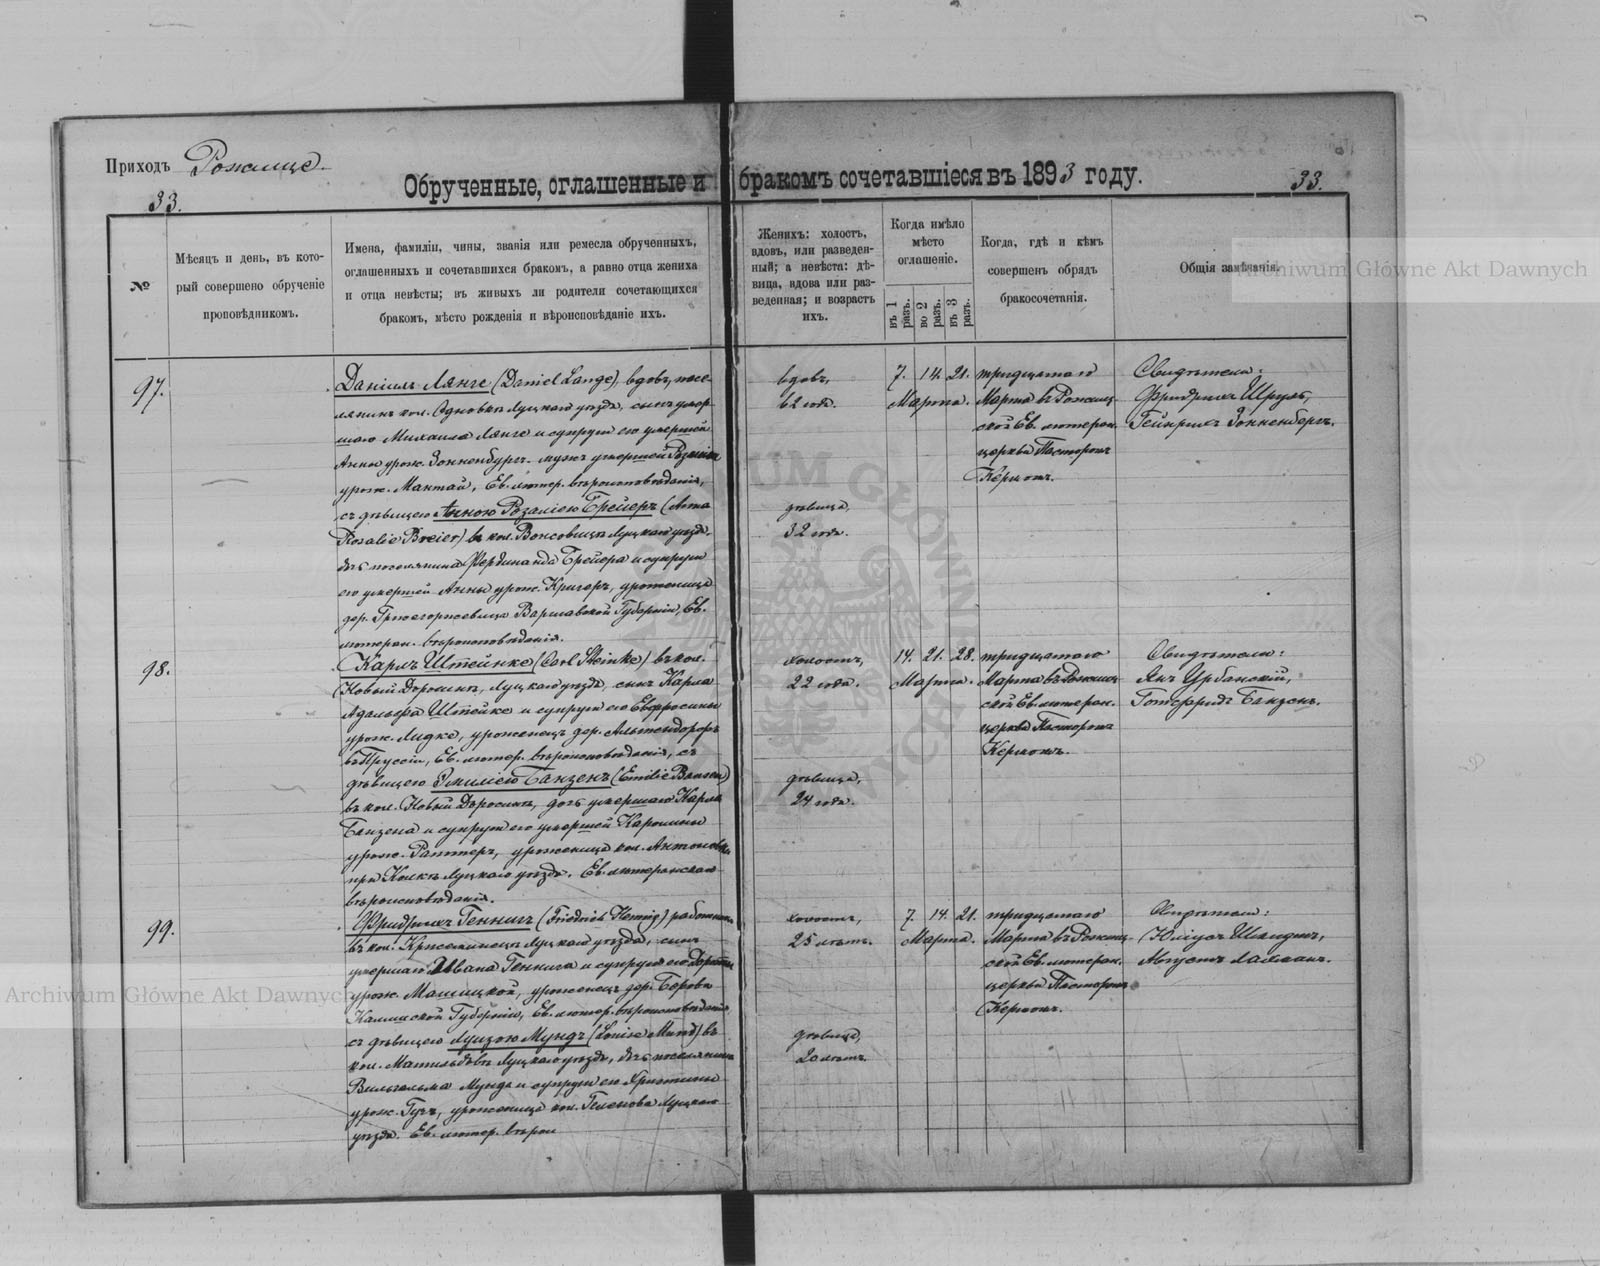 Приходъ Рожище
33.
Обрученные, оглашенные и бракомъ сочетавшіеся въ 1893 году.
33.
№
Мѣсяцъ и день, въ кото-
рый совершено обрученіе
проповѣдникомъ.
Имена, фамиліи, чины, званія или ремесла обрученныхъ,
оглашенныхъ и сочетавшихся бракомъ, а равно отца жениха
и отца невѣсты; въ живыхъ ли родители сочетающихся
бракомъ, мѣсто рожденія и вѣроисповѣданіе ихъ.
Женихъ: холостъ,
вдовъ, или разведен-
ный; а невѣста: дѣ-
вица, вдова или раз-
веденная; и возрастъ
ихъ.
Когда имѣло
мѣсто
оглашеніе.
въ 1 разъ.
во 2 разъ.
въ 3 разъ.
Когда, гдѣ и кѣмъ
совершенъ обрядъ
бракосочетанія.
Общія замѣчанія.
97.
Даніилъ Лянге (Daniel Lange), вдовъ, посе-
лянинъ кол. Луцкаго уѣзда, сынъ умер-
шаго Михаила Лянге и супруги его умершей
Анны урож. Зонненбургъ. мужъ умершей
урож. Мантай, Ев. лютер. вѣроисповѣданія,
съ дѣвицею Анною Розаліею Брейеръ (Anna
Rosalie Breier) въ кол. Луцкаго уѣзда,
дочь поселянина Фердинанда Брейера и супруги
его умершей Анны урож. Кригеръ, уроженица
дер. Варшавской Губерніи, Ев.
лютеран. вѣроисповѣданія.
вдовъ,
62 года.
дѣвица,
32 года.
7. 14. 21.
Марта.
тридцатаго
Марта въ Рожищ-
ской Ев. лютеран.
церкви Пасторомъ
Кёрномъ.
Свидѣтели:
Фридрихъ Шруль,
Гейнрихъ Зонненбергъ.
98.
Карлъ Штейнке (Carl Steinke) въ кол.
Новый Доросинъ, Луцкаго уѣзда, сынъ Карла
Адальфа Штейке и супруги его Евфросины
урож. Лидке, уроженецъ дер. Альтендорфъ
въ Пруссіи, Ев. лютер. вѣроисповѣданія, съ
дѣвицею Эмиліею Банзенъ (Emilie Bansen)
въ кол. Новый Доросинъ, дочь умершаго Карла
Банзена и супруги его умершей Каролины
урож. Раттеръ, уроженица кол. Антоновка
при Колкѣ Луцкаго уѣзда. Ев. лютеранскаго
вѣроисповѣданія.
холостъ,
22 года.
дѣвица,
24 года.
14. 21. 28.
Марта.
тридцатаго
Марта въ Рожищ-
ской Ев. лютеран.
церкви Пасторомъ
Кёрномъ.
Свидѣтели:
Янъ Урбанскій,
Готфридъ Банзенъ.
99.
Фридрихъ Геннигъ (Friedrich Hennig) работникъ
въ кол. Луцкаго уѣзда, сынъ
умершаго Ивана Геннига и супруги его Доротеи
урож. Машицкой, уроженецъ дер. Борова
Калишской Губерніи, Ев. лютер. вѣроисповѣданія
съ дѣвицею Луизою Мундъ (Louise Mund) въ
кол. Матильдовъ Луцкаго уѣзда, дочь поселянина
Вильгельма Мунда и супруги его Христины
урож. Гузъ, уроженица кол. Геленова Луцкаго
уѣзда. Ев. лютер. вѣрои
холостъ,
25 лѣтъ.
дѣвица,
20 лѣтъ.
7. 14. 21.
Марта.
тридцатаго
Марта въ Рожищ-
ской Ев. лютеран.
церкви Пасторомъ
Кёрномъ.
Свидѣтели:
Юліусъ Шмидтъ,
Августъ Лахманъ.
Archiwum Główne Akt Dawnych
Archiwum Główne Akt Dawnych